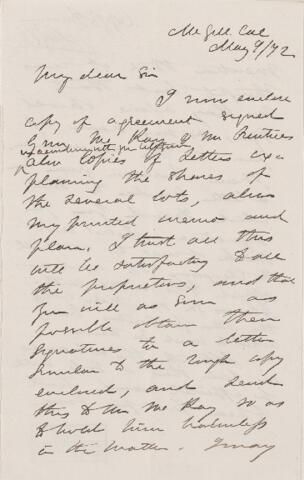 McGill Col
May 9/92
My dear Sir
I now enclose
copy of agreement signed
by me Mr McKay & Mr Pentice
in accordance with
also copies of letters ex-
plaining the shares of
the several lots, also
my printed memo and
plan. I trust all this
will be satisfactory to all
the proprietors, and that
you will as soon as
possible obtain their
signatures to a letter
similar to the rough copy
enclosed, and send
this to Mr McKay so as
to hold him harmless
in the matter. I may